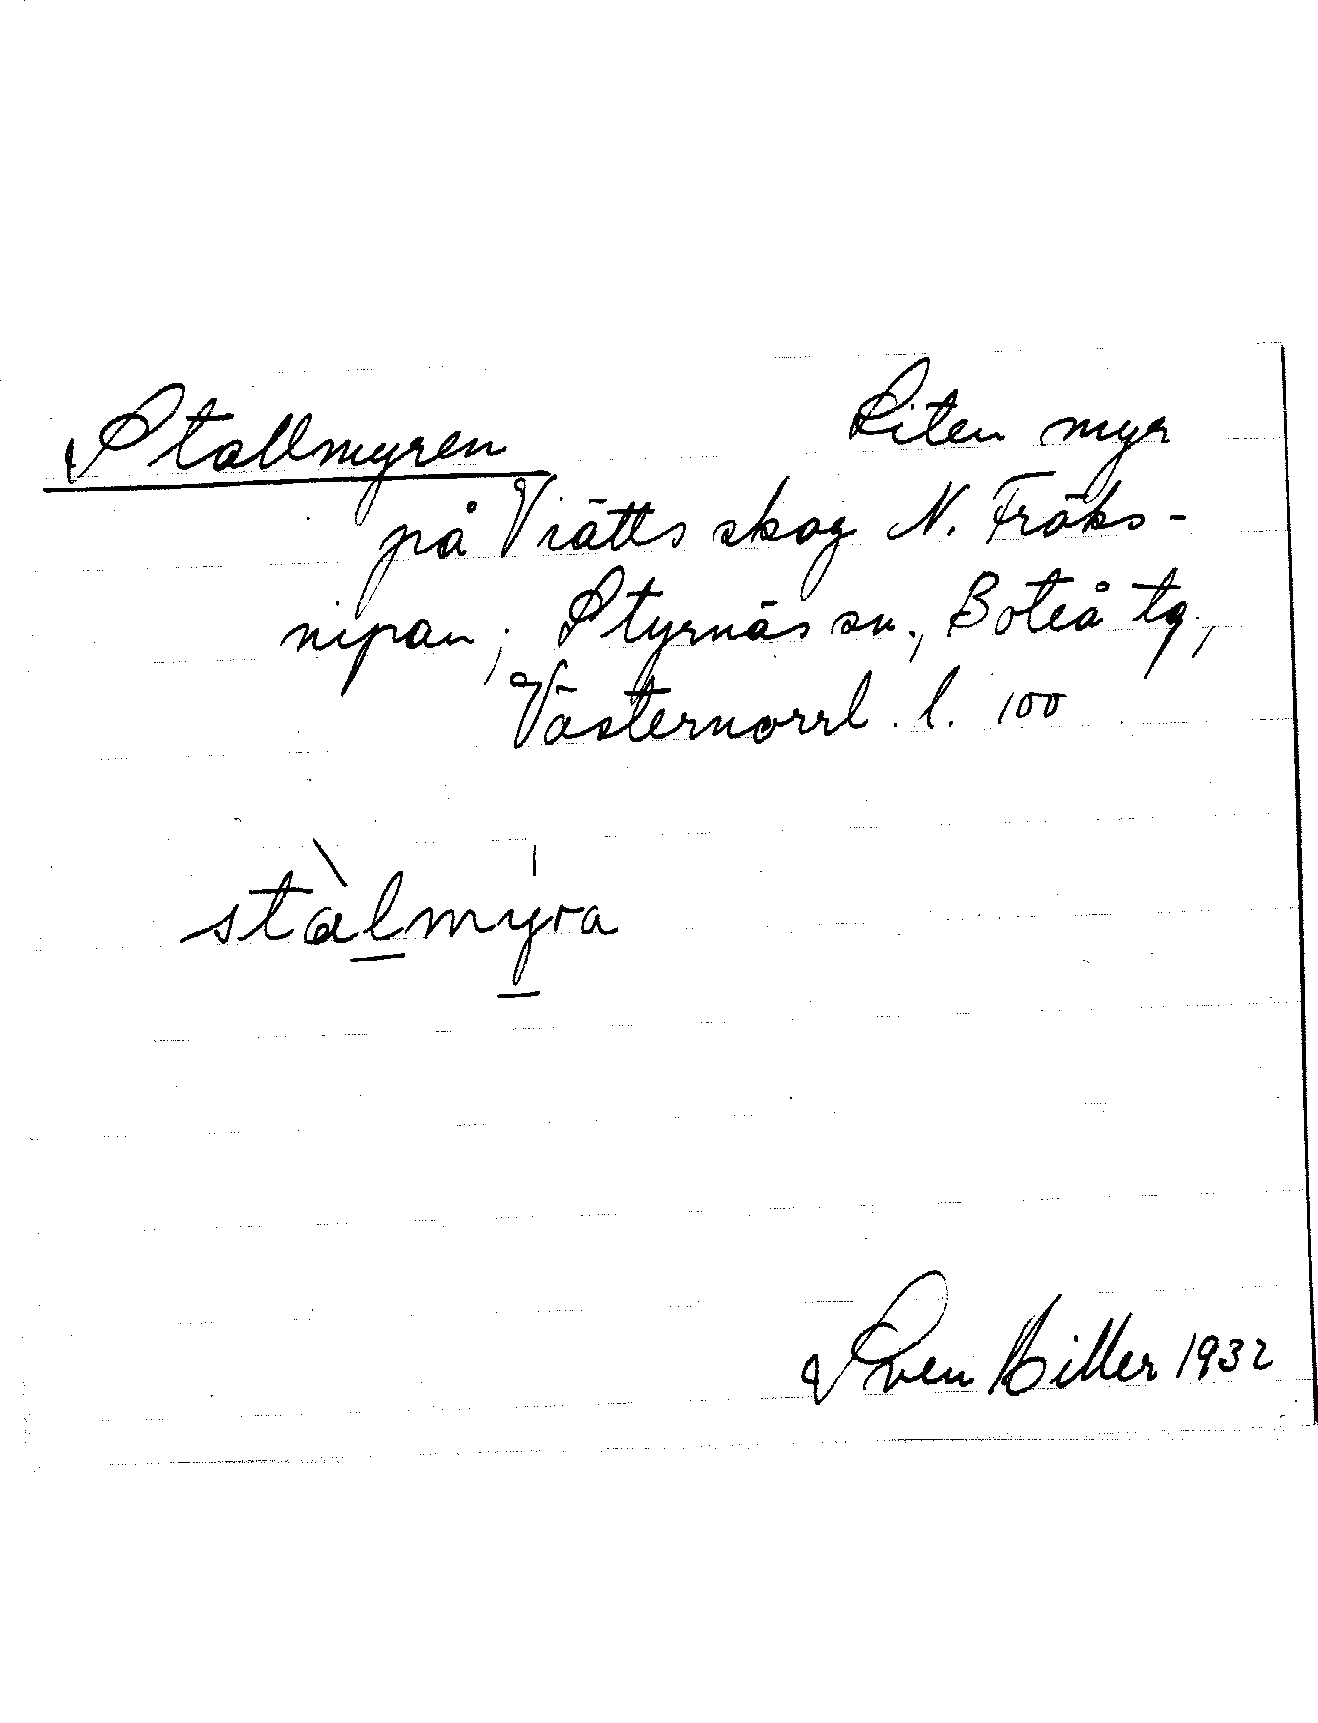 Stallmyren Liten myr
på Viätts skog N. Fräks-
nipan; Styrnäs sn., Boteå tg.,
Västernorrl. l. 100
stàlmyra
Sven Hiller 1932